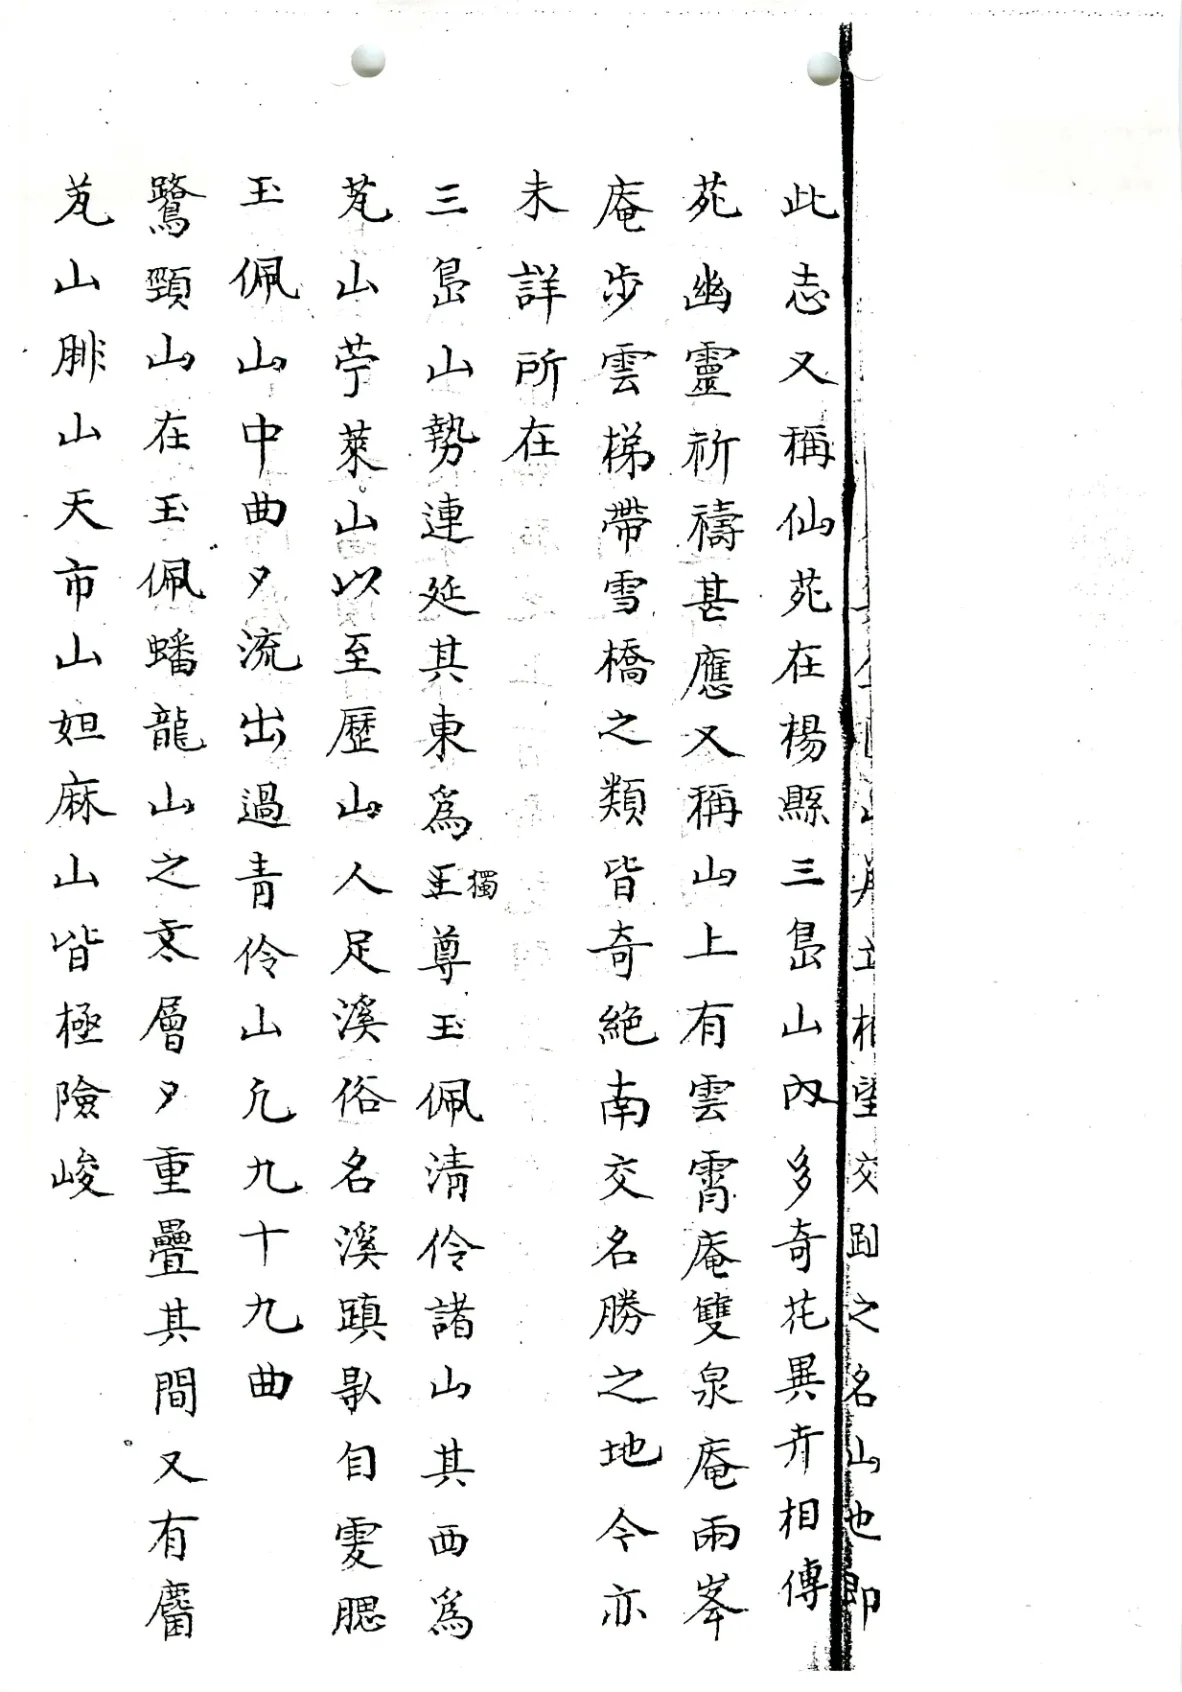 山 月 立 相 望 交 趾 之 名 山 也 即
此志又稱仙苑在楊縣三島山內多奇花異卉相傳
苑幽靈祈禱甚應又稱山上有雲霄庵雙泉庵雨峯
庵步雲梯帶雪橋之類皆奇絶南交名勝之地今亦
未詳所在
三島山勢連延其東爲王獨尊玉佩清伶諸山其西爲
芃山苧萊山以至歷山人足溪俗名溪蹎昻自雯腮
玉佩山中曲夕流出過青伶山凢九十九曲
鷺頸山在玉佩蟠龍山之裏層夕重疊其間又有麕
芃山腓山天市山妲麻山皆極險峻